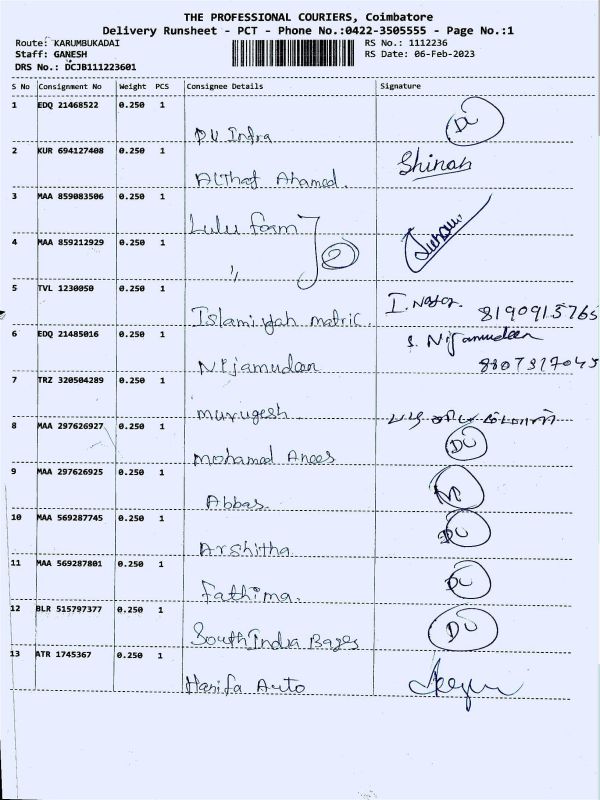 THE PROFESSIONAL COURIERS, Coimbatore
Delivery Runsheet - PCT - Phone No.:0422-3505555 - Page No.:1
Route: KARUMBUKADAI RS No.: 1112236
Staff: GANESH RS Date: 06-Feb-2023
DRS No.: DCJB111223601
S No Consignment No Weight PCS Consignee Details Signature
1 EDQ 21468522 0.250 1
DU Infra
2 KUR 694127408 0.250 1 Shinah
Althaf Ahamed.
3 MAA 859083506 0.250 1
Lulu farm
4 MAA 859212929 0.250 1
" 2
5 TVL 1230050 0.250 1
Islamiyah matric. 8190913765
6 EDQ 21485016 0.250 1 S. Nijamudeen
Nijamudeen 8807317043
7 TRZ 320504289 0.250 1
Murugesh
8 MAA 297626927 0.250 1 DU
Mohamed Anees
9 MAA 297626925 0.250 1
Abbas.
10 MAA 569287745 0.250 1 DU
Arshitha
11 MAA 569287801 0.250 1 DU
Fathima.
12 BLR 515797377 0.250 1 DU
South India Bages
13 ATR 1745367 0.250 1
Hanifa Auto